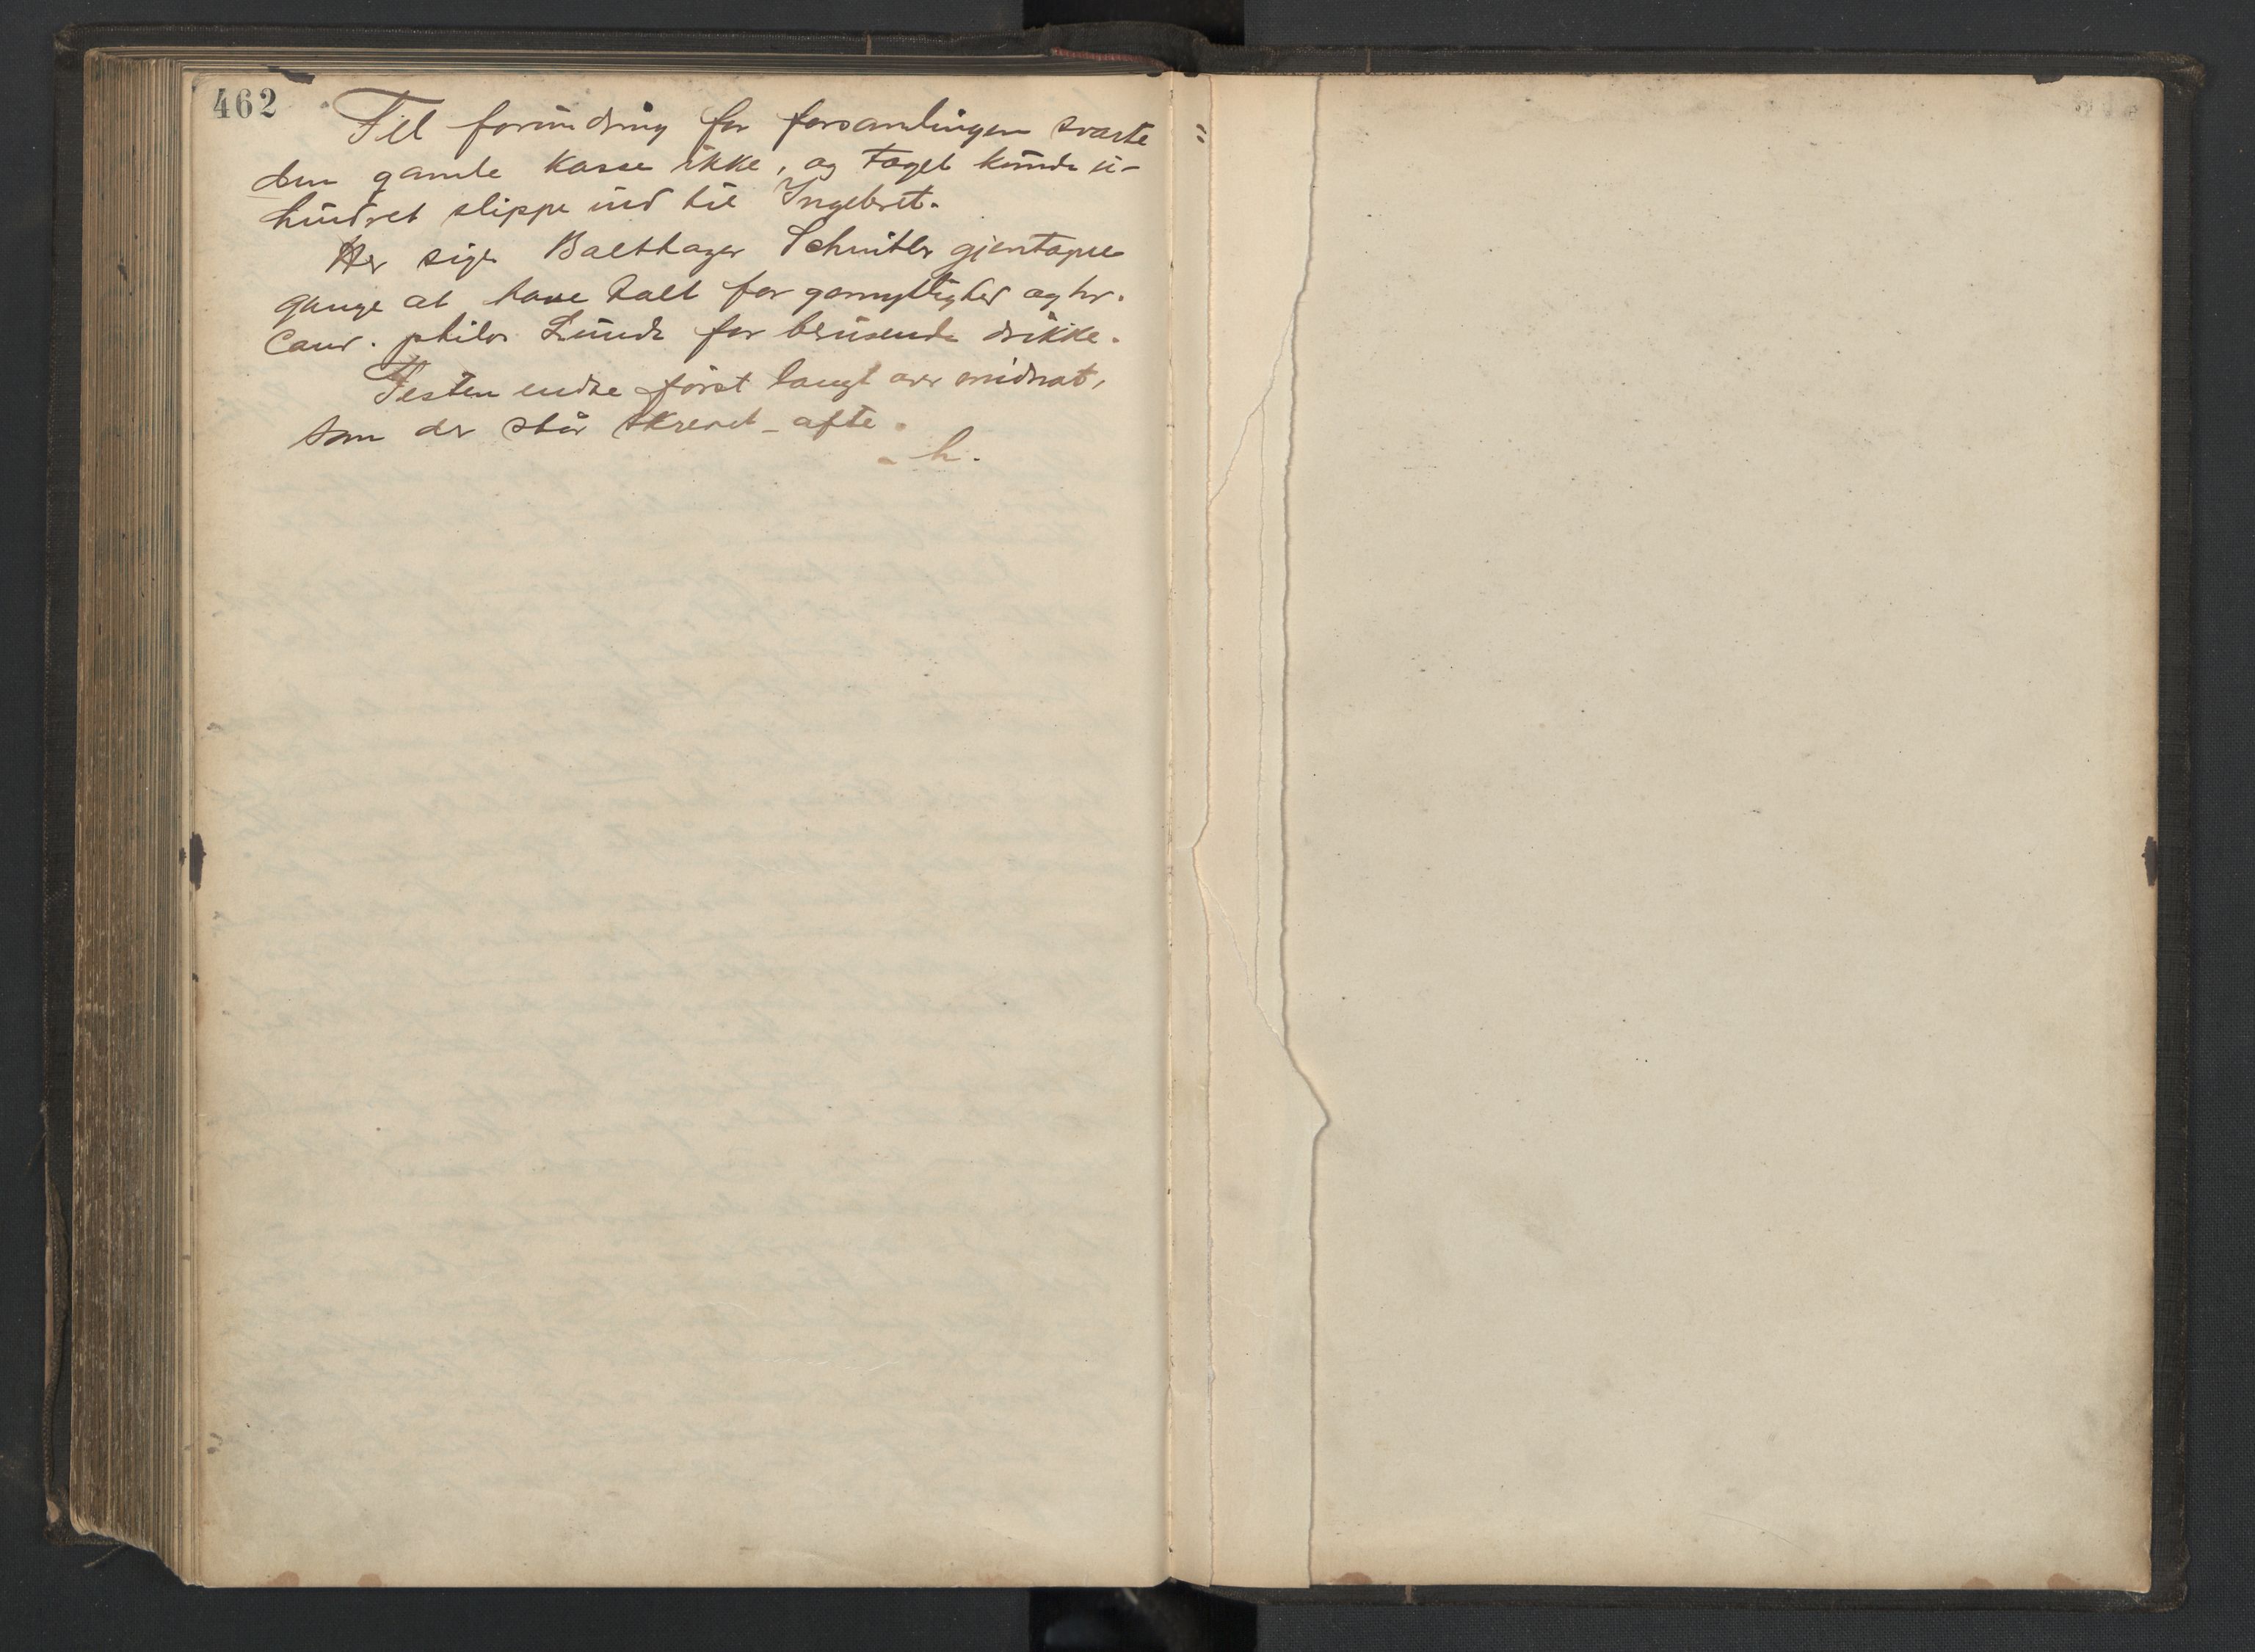 462
Til forundring for forsamlingen svarte
den gamle kasse ikke, og toget kunde u-
hindret slippe ind til Ingebret.
Her siges Balthazar Schnitler gjentagne
gange at have talt for gemytlighed og hr.
Cand. philos. Lunde for brusende drikke.
Festen endte först langt over midnat,
som der står skrevet _ ofte.
- h.